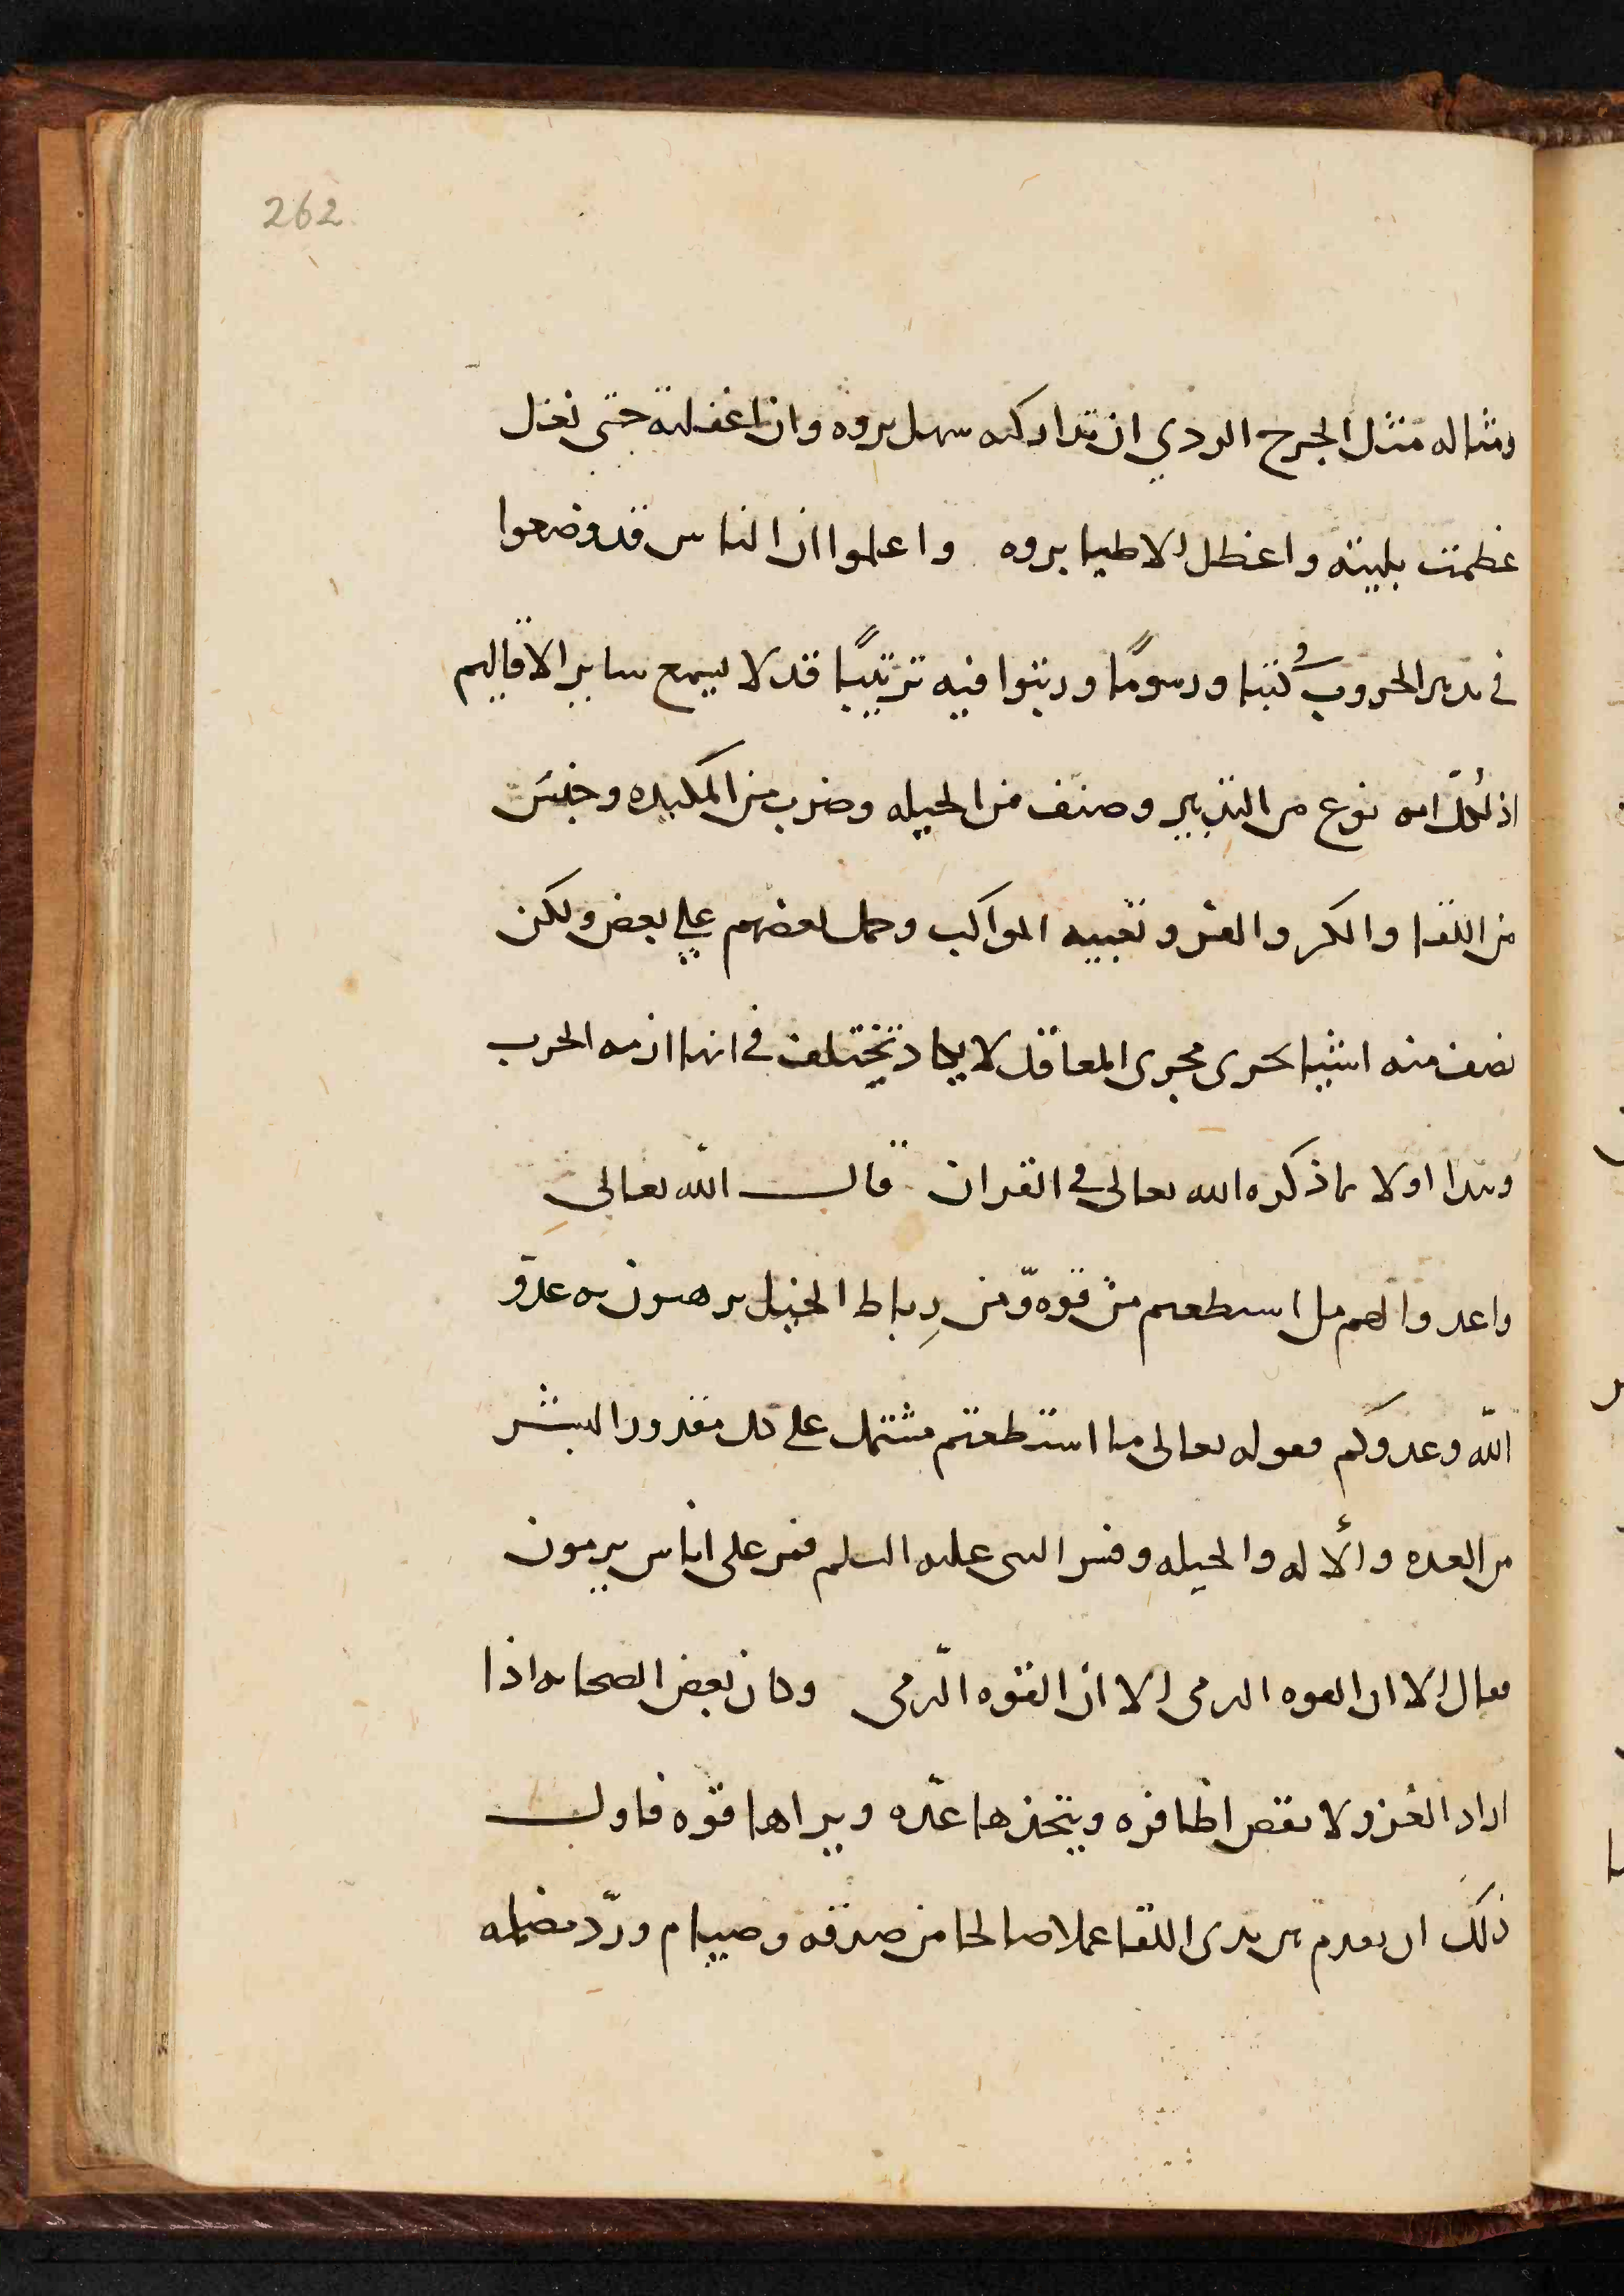 262
ومثاله مثل الجرح الردي ان تداركته سهل بروه وان اغفلته حتى نغل
عظمت بليته واعظل الاطبا بروه واعلموا ان الناس قد وضعوا
في تدبير الحروب كتبا ورسومًا ورتبوا فيه ترتيبًا قد لا يسع ساير الاقاليم
اذ لكل امه نوع من التدبير وصنف من الحيله وضرب من المكيده وجنس
من اللقا والكر والفر وتعبيه المواكب وحمل بعضهم علي بعض ولكن
نصف منه اشيا تجرى مجرى المعاقل لا يكاد تختلف في انها ازمه الحرب
ونبدا اولا بما ذكره الله تعالى في القران قال الله تعالى
واعدوا لهم ما استطعتم من قوه ومن رِباط الخيل ترهبون به عدو
الله وعدوكم فقوله تعالى ما استطعتم مشتمل على كل مقدور البشر
من العده والأله والحيله وفسر النبى عليه السلم فمر على اناس يرمون
فقال الا ان القوه الرمى الا ان القوه الرمى وكان بعض الصحابه اذا
اراد الغزو لا يقص اظافره ويتخذها عدّه ويراها قوه فاول
ذلك ان يقدم بين يدى اللقا عملا صالحا من صدقه وصيام وردّ مظلمه